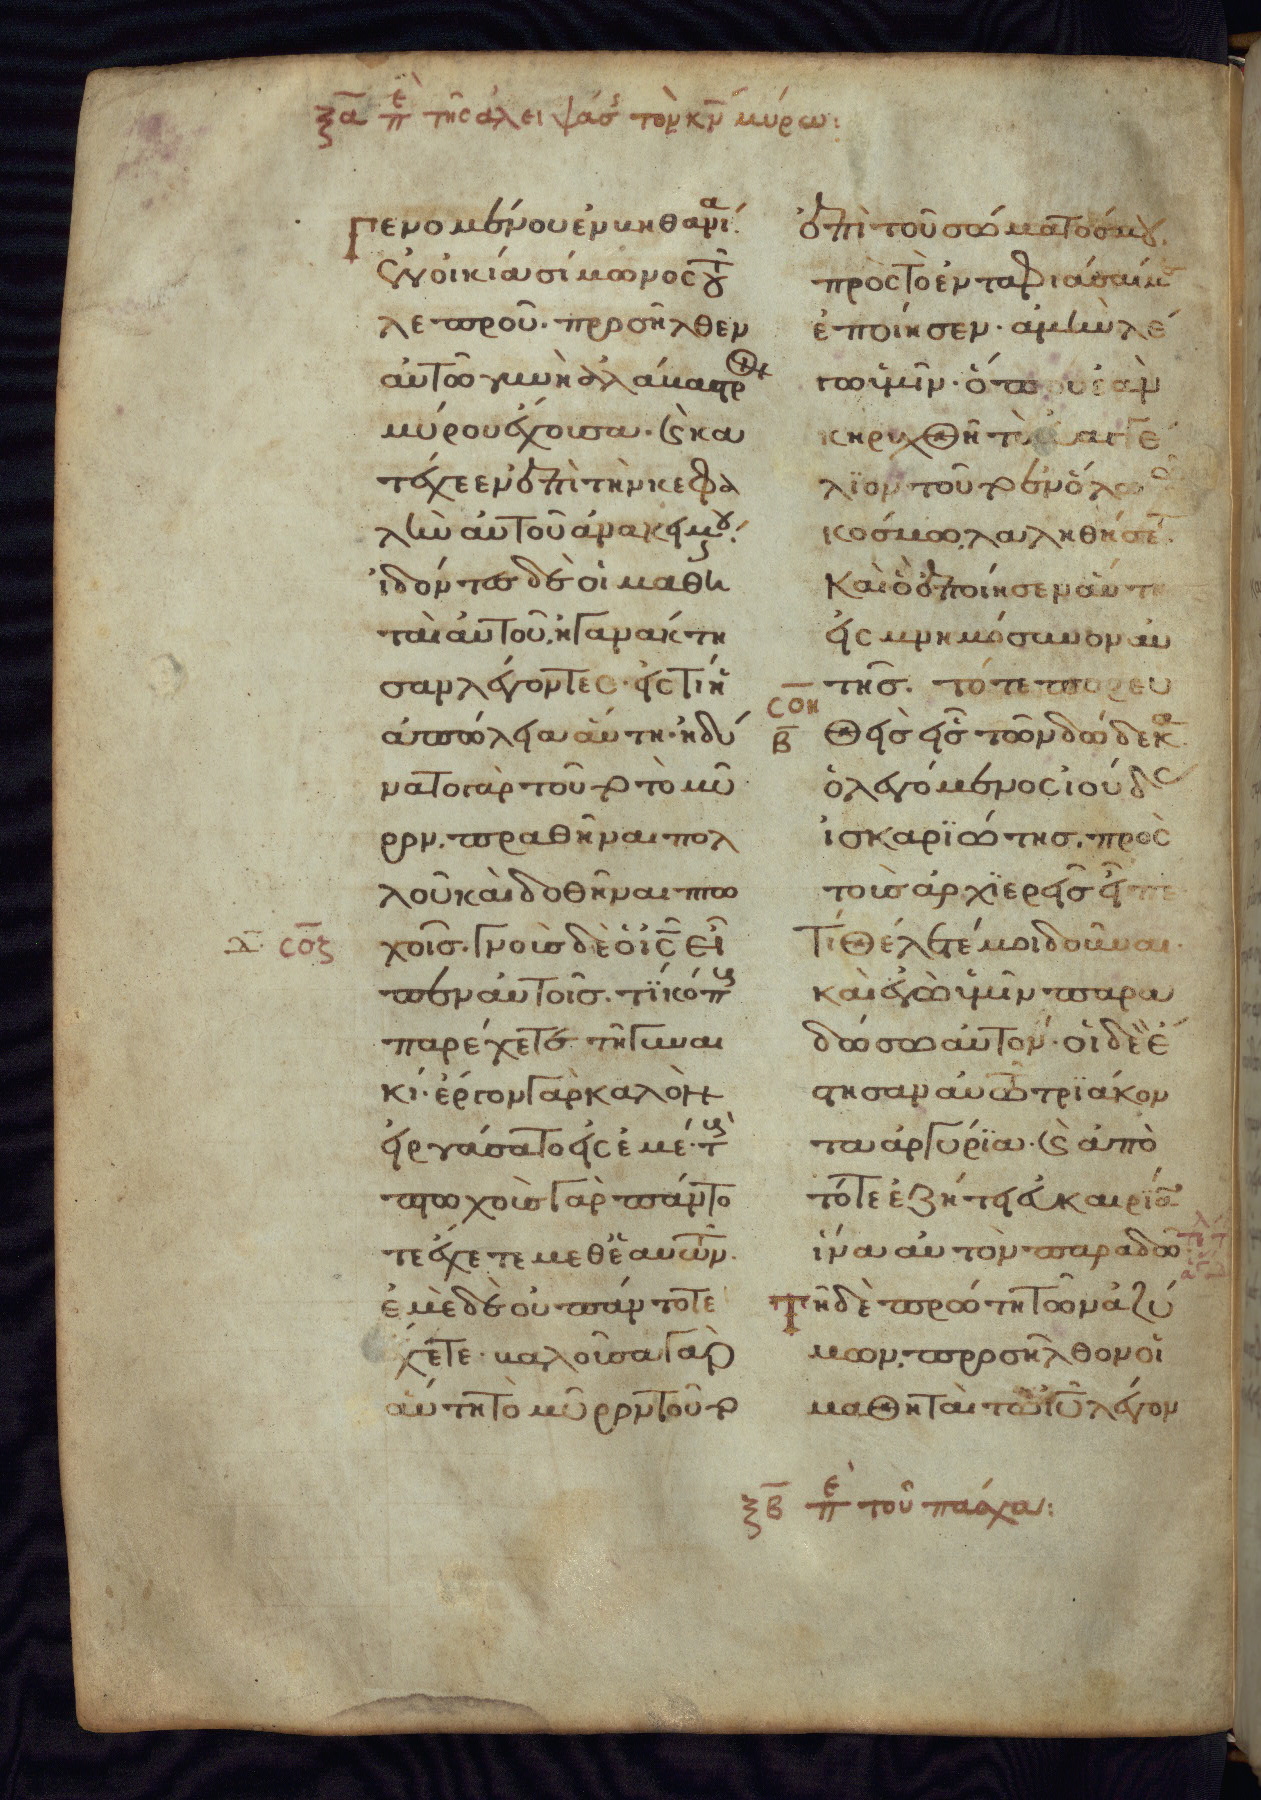 ξα πε τῆς ἀλειψάσ τὸν κν μύρω:
Γενομένου ἐν βηθανί
ἐν οἰκία σίμωνος τοῦ
λεπροῦ. προσῆλθεν
αὐτῶ γυνὴ ἀλάβαστρον
μύρου ἔχουσα. καὶ κα
τέχεεν ἐπὶ τὴν κεφα
λὴν αὐτοῦ ἀνακειμένου.
ἰδόντες δὲ οἱ μαθη
ταὶ αὐτοῦ, ἠγανάκτη
σαν λέγοντες· εἰς τί ἡ
ἀπώλεια αὕτη· ἠδύ
νατο γὰρ τοῦτο τὸ μύ
ρον, πραθῆναι πολ
λοῦ καὶ δοθῆναι πτω
χοῖς. γνοὺς δὲ ὁ ις εἶ
δ σοζ
πεν αὐτοῖς. τί κόπους
παρέχετε τῆ γυναι
κί· ἔργον γὰρ καλὸν
εἰργάσατο εἰς ἐμέ· τοὺς
πτωχοὺς γὰρ πάντο
τε ἔχετε μεθ' ἑαυτῶν.
ἐμὲ δὲ οὐ πάντοτε
ἔχετε· βαλοῦσα γὰρ
αὕτη τὸ μύρον τοῦτο
ἐπὶ τοῦ σώματός μου,
πρὸς τὸ ἐνταφιάσαι με
ἐποίησεν· ἀμὴν λέ
γω ὑμῖν· ὅπου ἐὰν
κηρυχθῆ τὸ εὐαγγέ
λϊον τοῦτο ἐν ὅλω τῶ
κόσμω, λαληθήσεται
καὶ ὃ ἐποίησεν αὕτη
εἰς μνημόσυνον αὐ
τῆς. τότε πορευ
σοη
β
θεὶς εἷς τῶν δώδεκα
ὁ λεγόμενος ἰούδας
ἰσκαρϊώτης, πρὸς
τοὺς ἀρχϊερεῖς εἶπε
Τί θέλετέ μοι δοῦναι.
καὶ ἐγὼ ὑμῖν παρα
δώσω αὐτόν· οἱ δὲ ἔ
στησαν αὐτῶ τρϊάκον
τα ἀργύρϊα· καὶ ἀπὸ
τότε ἐζήτει εὐκαιρίαν
ἵνα αὐτὸν παραδῶ
Τῆ δὲ πρώτη τῶν ἀζύ
μων, προσῆλθον οἱ
μαθηταὶ τῶ ιυ λέγον
ξβ πε τοῦ πάσχα: